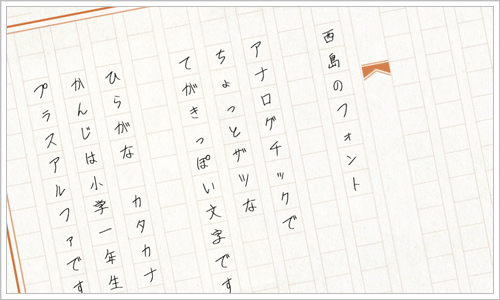 西島のフォント
アナログチックで
ちょっとザツな
てがきっぽい文字です
ひらがな カタカナ
かんじは小学一年生
プラスアルファです